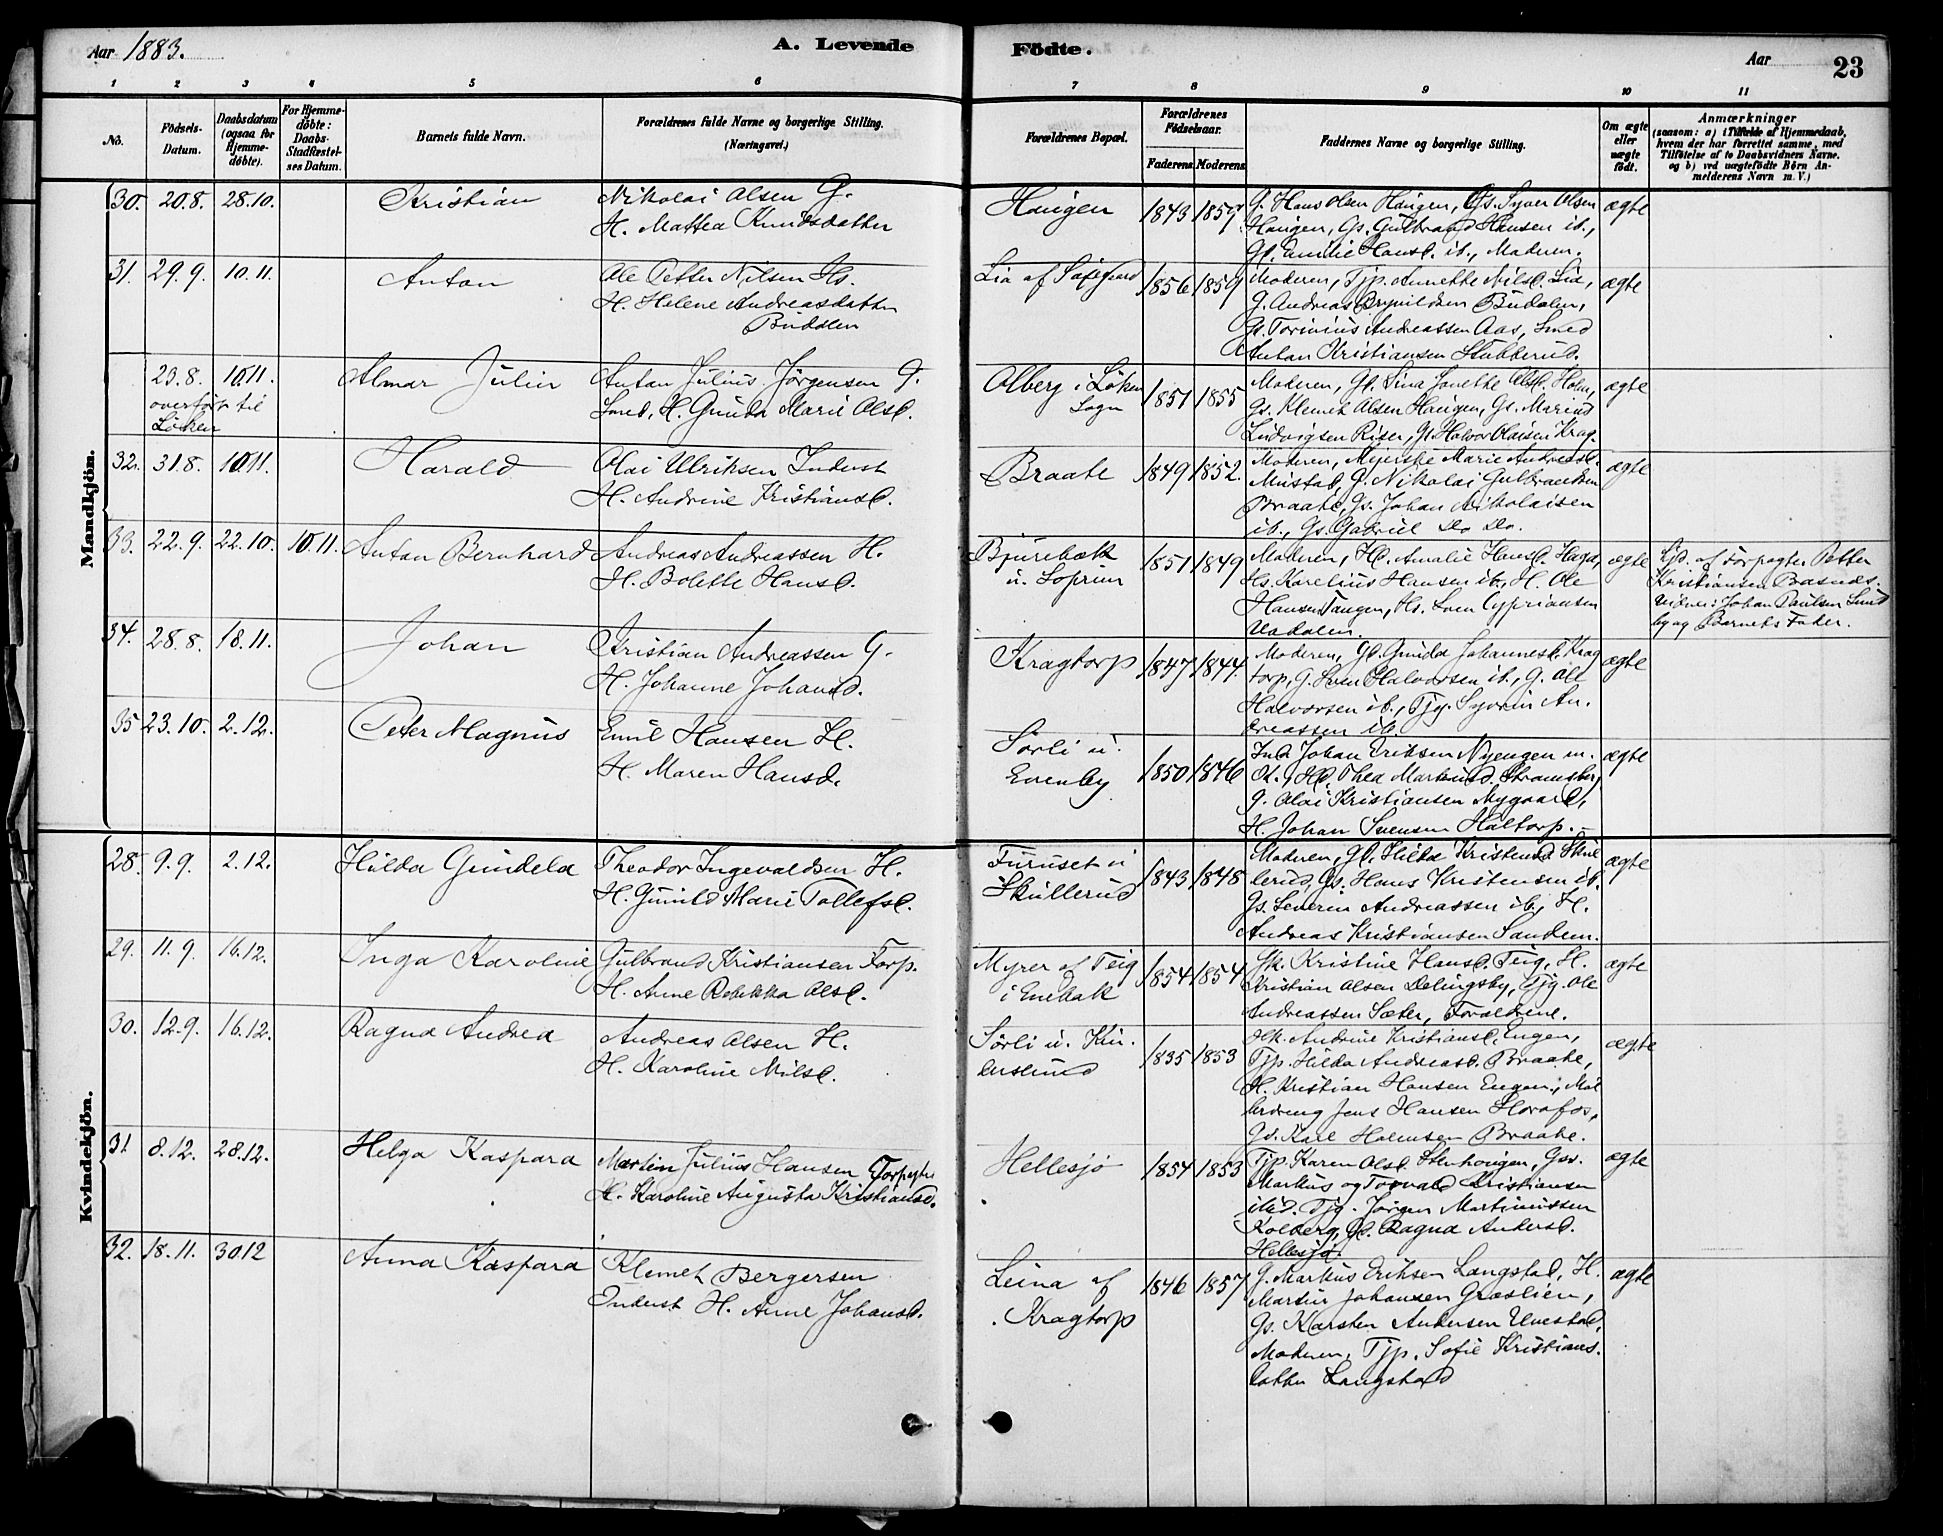 Aar 1883.
A. Levende Födte.
Aar
23
1 2 3 4 5 6 7 8 9 10 11
No.
Födsels-Datum.
Daabsdatum (ogsaa for Hjemmedöbte).
For Hjemmedöbte: Daabs-Stadfæstelses Datum.
Barnets fulde Navn.
Forældrenes fulde Navne og borgerlige Stilling. (Næringsvei.)
Forældrenes Bopæl.
Forældrenes Födselsaar.
Faderens Moderens
Faddernes Navne og borgerlige Stilling.
Om ægte eller uægte födt.
Anmærkninger
(saasom: a) i Tilfælde af Hjemmedaab, hvem der har forrettet samme, med Tilföielse af to Daabsvidners Navne, og b) ved uægtefödte Börn Anmelderens Navn m. V.)
Mandkjön.
30. 20.8. 28.10. Kristian
Nikolai Olsen G.
H. Mathea Knudsdatter
Haugen 1843 1859
G. Hans Olsen Haugen, Gs. Syver Olsen
Haugen, Gs. Gulbrand Hansen ib.,
Gd. Emilie Hansd. ib., Moderen.
ægte
31. 29.9. 10.11. Anton
Ole Petter Nilsen Hs.
H. Helene Andreasdatter
Budalen
Lia af 1856 1859
Moderen, Tjp. Annette Nilsd. Lia,
G. Andreas Brynildsen Budalen,
Gs. Torinius Andreassen Aas, Smed
Anton Kristiansen Stubberud.
ægte
29.8. 10.11. Almar Julin
overfört til
Löken
Anton Julius Jörgensen G.
Smed, H. Gunda Marie Olsd.
Olberg i Löken
Sogn
1851 1855
Moderen, Gd. Lina Janette Olsd. Holm,
Gs. Klemet Olsen Haugen, Gs. Marius
Ludvigsen Riser, Gs. Halvor Olaisen Krag.
ægte
32. 31.8. 10.11. Harald
Olai Ulriksen Inderst
H. Andrine Kristiansd.
Braate 1849 1852.
Moderen, Meierske Marie Andreasd.
Mustad, G. Nikolai Gulbrandsen
Braate, Gs. Johan Nikolaisen
ib., Gs. Gabriel Do Do.
ægte
33. 22.9. 22.10. 10.11. Anton Bernhard
Andreas Andreassen H.
H. Bolette Hansd.
Bjurebæk
u. Soprim
1851 1849
Moderen, Hd. Amalie Hansd. Haga,
Hs. Karelius Hansen ib., H. Ole
Hansen Tangen, Hs. Sven Cypriansen
Vadalen.
ægte
Hjd. af Forpagter Petter
Kristiansen Basnes.
Vidner: Johan Paulsen Sund
by og Barnets Fader.
34. 28.8. 18.11. Johan
Kristian Andreassen G.
H. Johanne Johansd.
Kragtorp 1847 1844.
Moderen, Gd. Gunda Johannesd. Krag
torp, G. Sven Halvorsen ib., G. Ole
Halvorsen ib., Tjg. Syverin An-
dreassen ib.
ægte
35 23.10. 2.12. Peter Magnus
Emil Hansen H.
H. Maren Hansd.
Sörli u.
Evenby
1850 1846
Ind. Johan Eriksen Nyengen m.
K., Hd. Thea Martinsd. Stramsberg,
G. Olai Kristiansen Nygaard,
H. Johan Svensen Haltorp.
ægte
Kvindekjön.
28. 9.9. 2.12. Hilda Gundela
Theodor Ingevaldsen H.
H. Gunild Marie Tollefsd.
Furuset u
Skullerud
1843 1848
Moderen, Gd. Hilda Kristensd. Skul
lerud, Gs. Hans Kristensen ib.
Gs. Severin Andreassen ib., H.
Andreas Kristiansen Sandem.
ægte
29. 11.9. 16.12. Inga Karoline
Gulbrand Kristiansen Forp.
H. Anne Rebekka Olsd.
Myrer af Teig
i Enebak
1854 1854
Gk. Kristine Hansd. Teig, H.
Kristian Olsen Delingsby, Tjg. Ole
Andreassen Sæter, Forældrene.
ægte
30. 12.9. 16.12. Ragna Andrea
Andreas Olsen H.
H. Karoline Nilsd.
Sörli u. Kin-
derslund
1835 1853
Hk. Andrine Kristiansd. Engen,
Tjp. Hilda Andreasd. Braate,
H. Kristian Hansen Engen, Möl
lerdreng Jens Hansen Horafos,
Gs. Karl Halmsen Braate.
ægte
31 8.12. 28.12. Helga Kaspara
Martin Julius Hansen Forpagter
H. Karoline Augusta Kristiansd.
Hellesjö 1854 1853
Tjp. Karen Olsd. Stenhougen, Gss.
Markus og Torvald Kristiansen
ibid. Tjg. Jörgen Martiniussen
Kolberg, Gd. Ragna Andersd.
Hellesjö.
ægte
32. 18.11. 30.12 Anna Kaspara
Klemet Bergersen
Inderst H. Anne Johansd.
Leina af
Kragtorp
1846 1857
G. Markus Eriksen Langstad, H.
Martin Johansen Græslien,
Gs. Karsten Andersen Uvestad,
Moderen, Tjp. Sofie Kristians-
datter Langstad
ægte